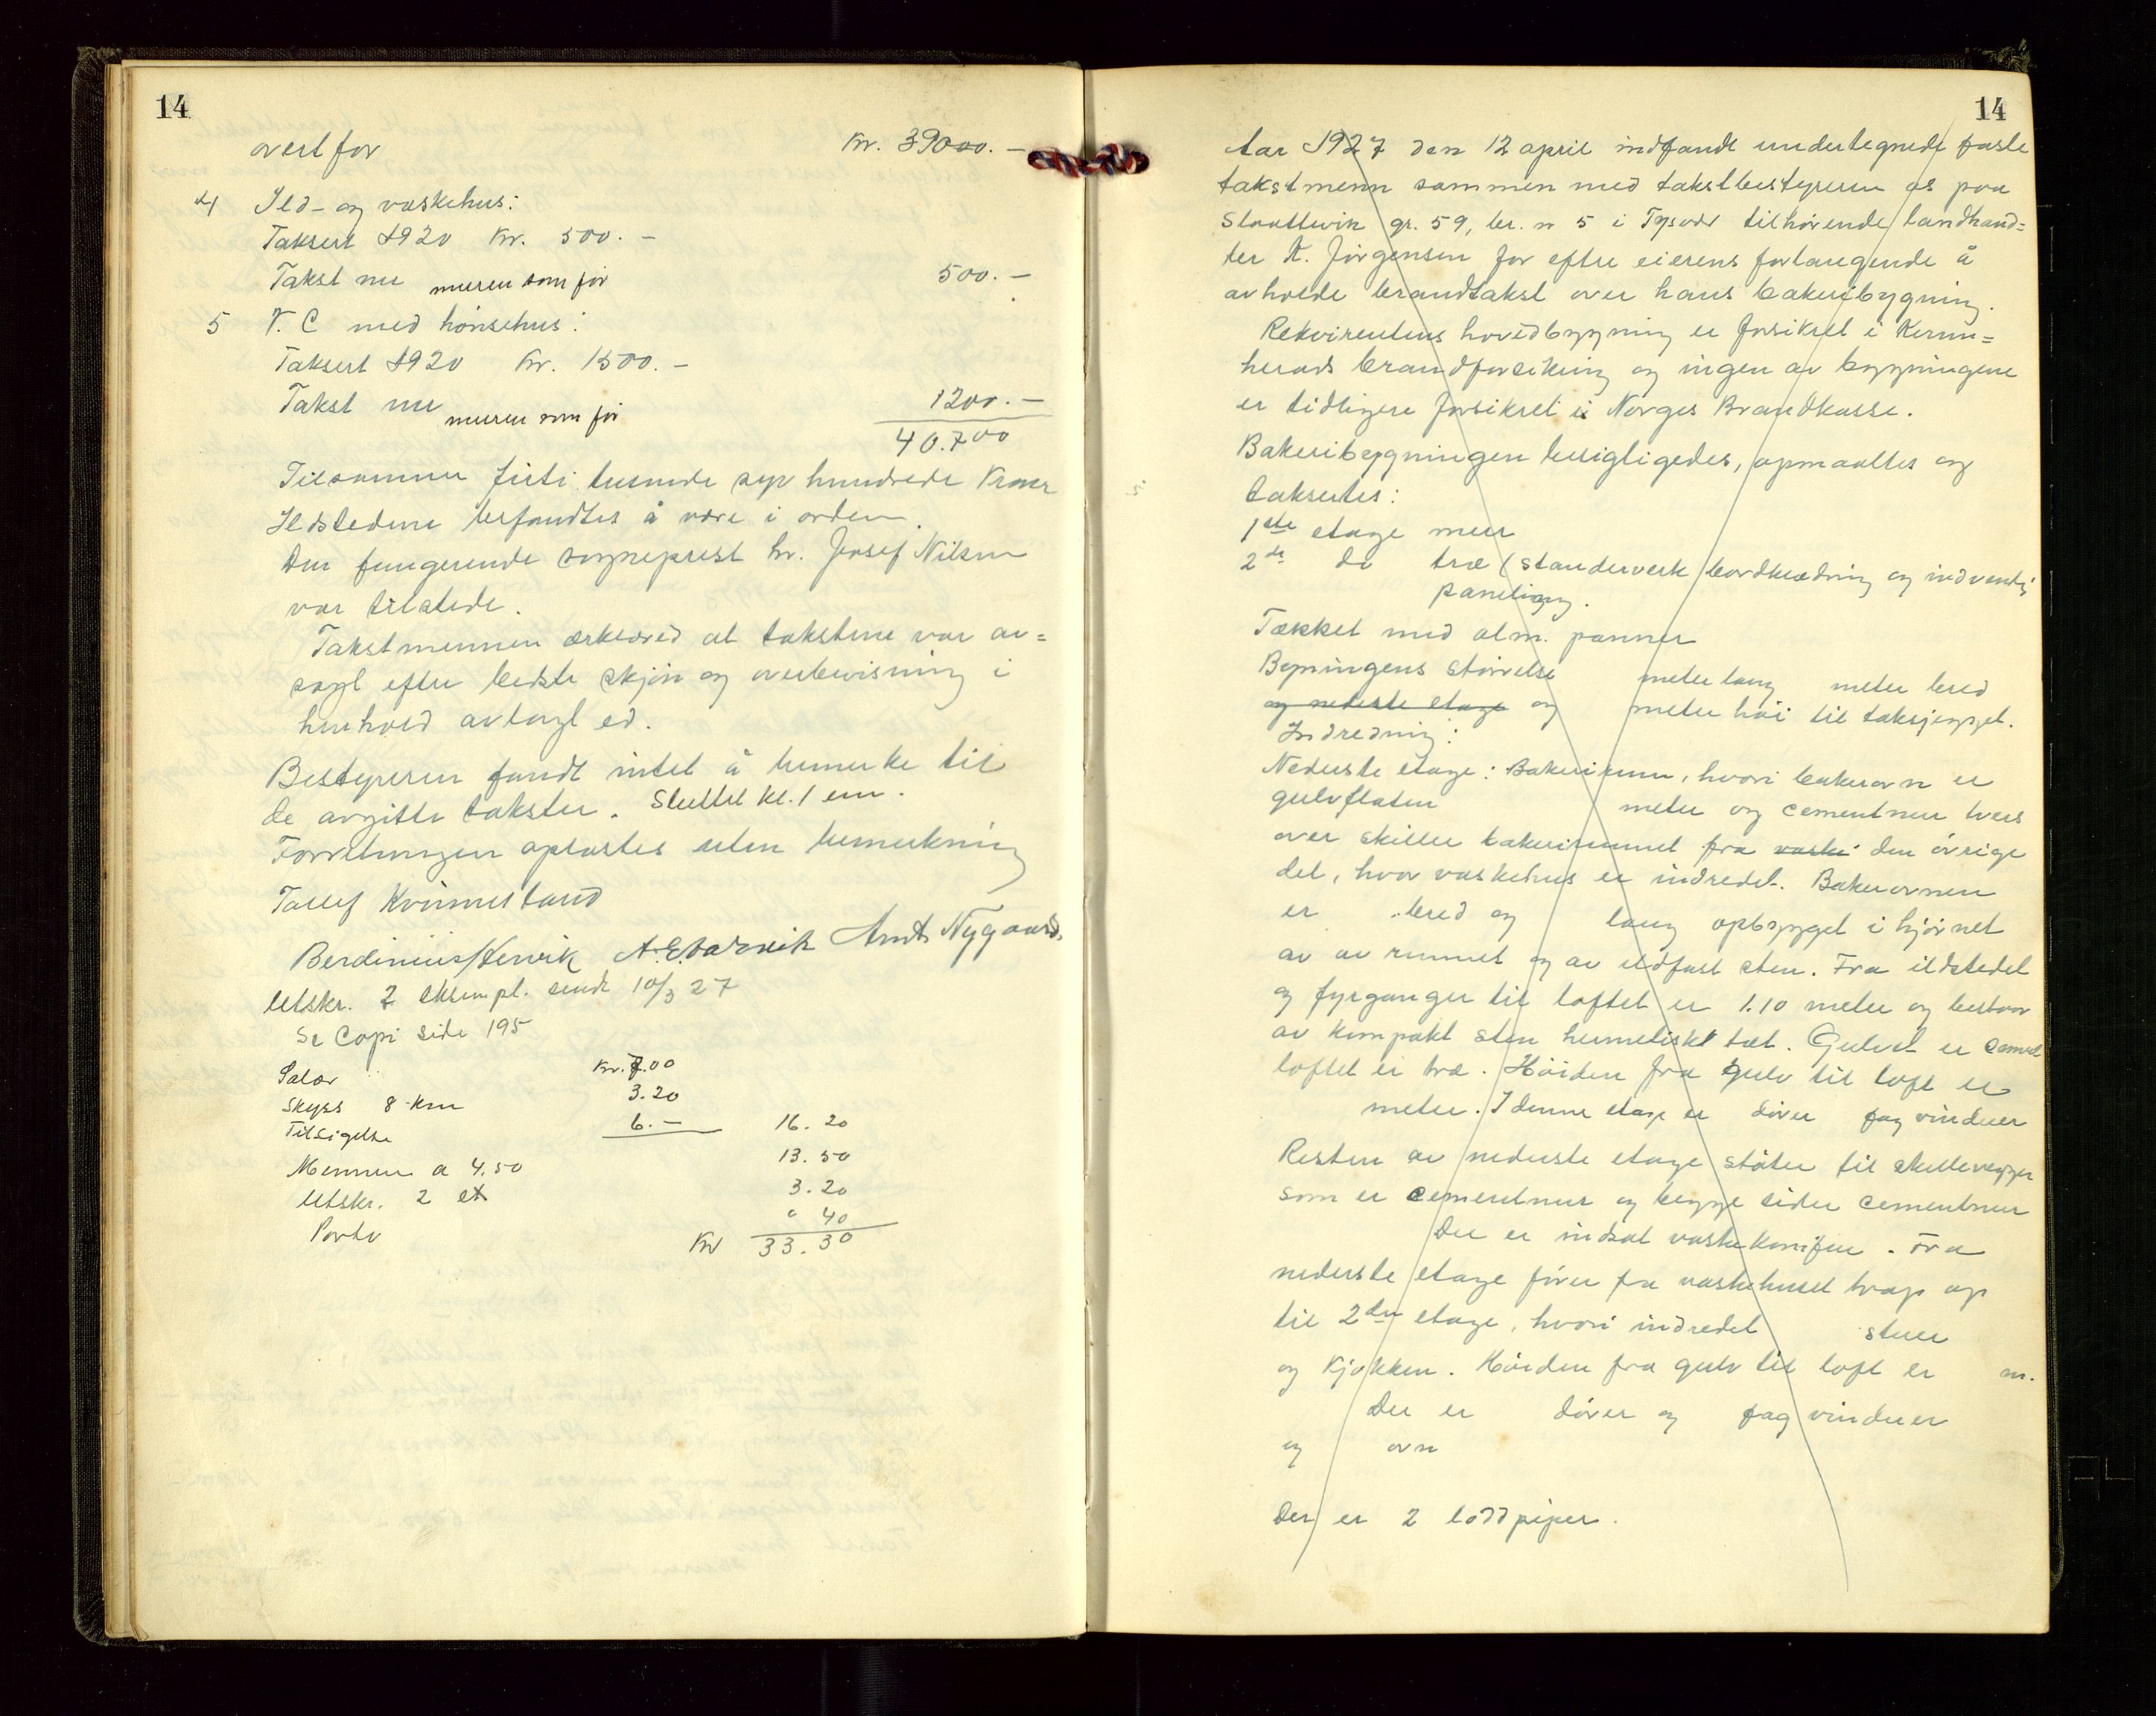 14
overført for Kr. 39000.-
4 Ild- og vaskehus:
Taksert 1920 Kr. 500.-
Takst nu muren som før 500.-
5 V. C med hønsehus:
Taksert 1920 Kr. 1500.-
Takst nu muren som før 1200.-
40.700
Tilsammen firti tusunde syv hundrede Kroner
Ildstedene befandtes å være i orden.
Den fungerende sogneprest hr. Josef Nilsen
var tilstede.
Takstmennen erklæred at takstene var av=
sagt efter bedste skjøn og overbevisning i
henhold avlagt ed.
Bestyreren fandt intet å bemerke til
de avgitte takster. Sluttet kl. 1 em.
Forretningen oplæstes uten bemerkning
Tollef Kvinnesland
Berdinius Henvik Arnt Nygaard.
Utskr. 2 eksempl. sendt 10/3 27
Se Copi side 195
Salær Kr. 7.00
Skyss 8 km 3.20
Tilsigelse 6.- 16.20
Mennene a 4.50 13.50
Utskr. 2 et 3.20
Porto " 40
Kr 33.30
14
Aar 1927 den 12 april indfandt undertegnede faste
takstmenn sammen med takstbestyreren os paa
Slaattevik gr. 59, br. n 5 i Tysvær tilhørende landhand=
ler K. Jørgensen for efter eierens forlangende å
avholde brandtakst over hans bakeribygning.
Rekvirentens hovedbygning er forsikret i Kern=
herads brandforsikring og ingen av bygningene
er tidligere forsikret i Norges Brandkasse.
Bakeribygningen besigtigedes, opmaaltes og
taksertes:
1ste etage mur
2de do træ (standerverk bordklædning og indvendig
paneling.
Tækket med alm. panner
Bygningens størrelse meter lang meter bred
og nederste etage og meter høi til taksjegget.
Indredning:
Nederste etage: Bakerirum, hvori bakerovn er
gulvflaten meter og cementmur tvers
over skiller bakerirummet fra vaske den øvrige
del, hvor vaskehus er indredet. Bakerovnen
er bred og lang opbygget i hjørnet
av av rummet og av ildfast sten. Fra ildstedet
og fyrganger til loftet er 1.10 meter og bestaar
av kompakt sten hermetiskt tæt. Gulvet er cement
loftet er træ. Høiden fra gulv til loft er
meter. I denne etage er dører fag vinduer
Resten av nederste etage støter til skillevegger
som er cementmur og begge sider cementmur
Der er indsat vaskekomfur. Fra
nederste etage fører fra vaskehuset trap op
til 2den etage, hvori indredet stuer
og kjøkken. Høiden fra gulv til loft er m.
Der er dører og fag vinduer
og ovn
Der er 2 loddpiper.